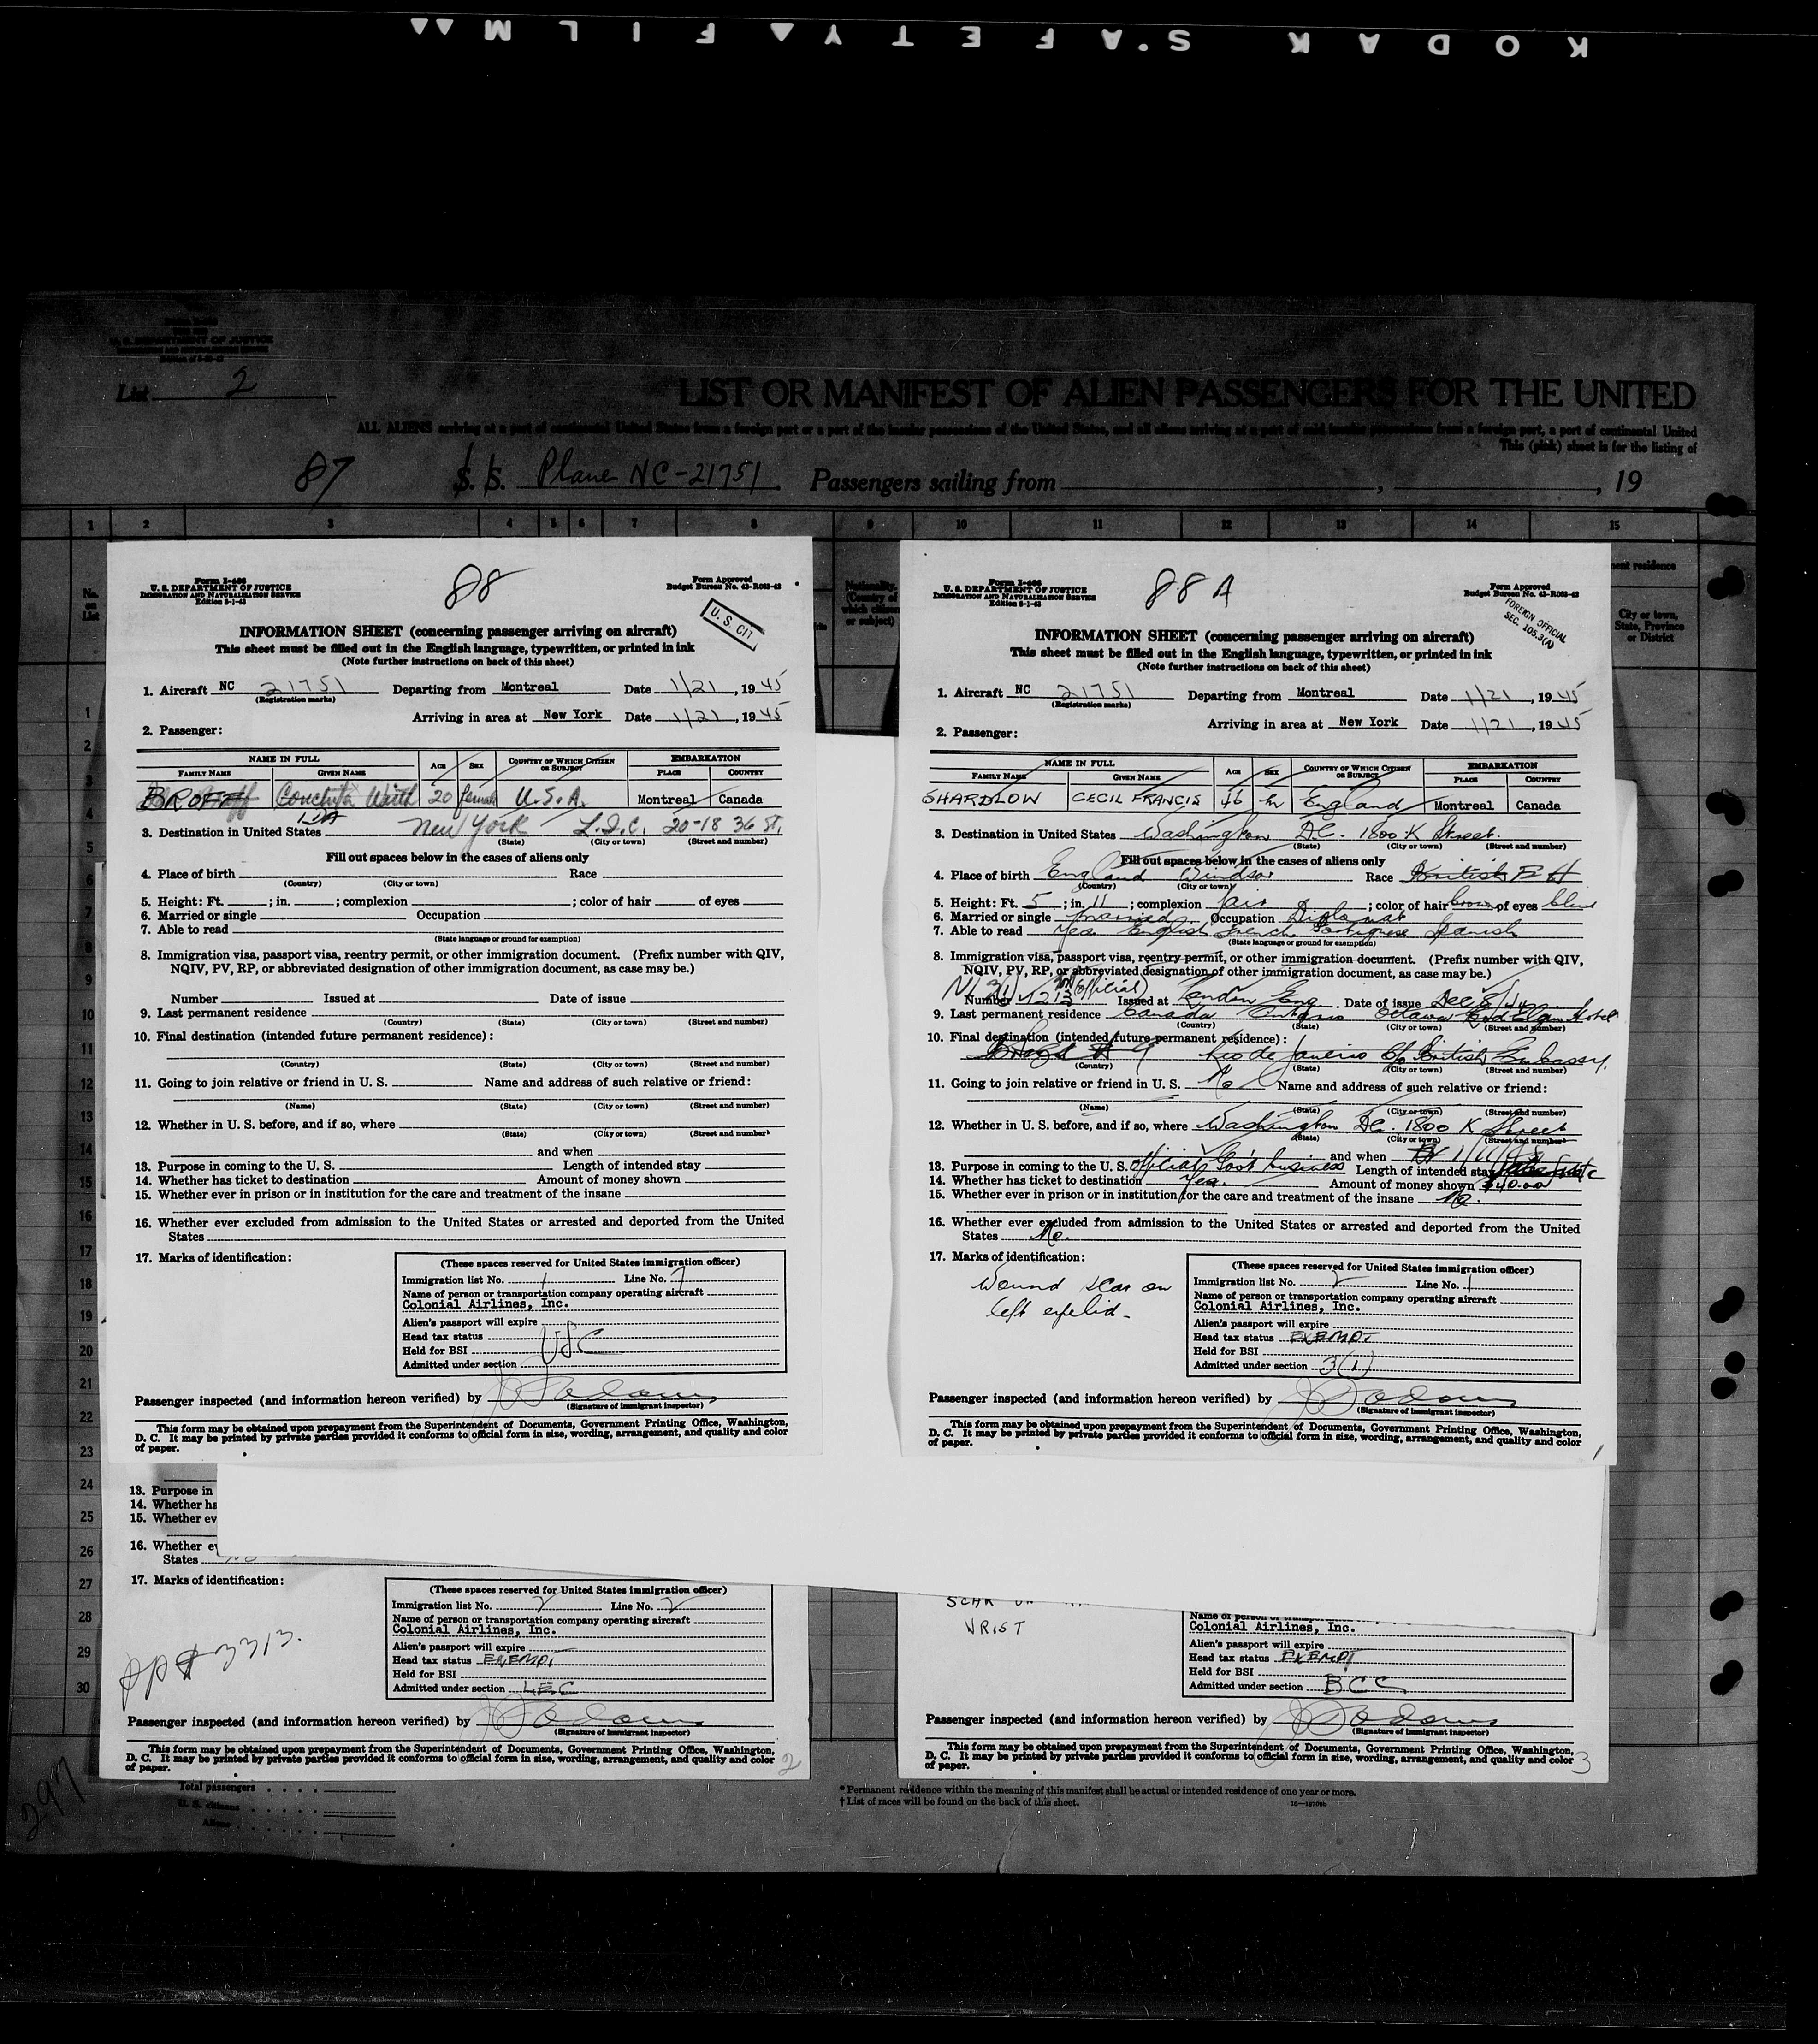 KODAK SAFETY FILM
U. S. DEPARTMENT OF JUSTICE
List 2
LIST OR MANIFEST OF ALIEN PASSENGERS FOR THE UNITED
ALL ALIENS arriving at a port of continental United States from a foreign port or a port of the insular possessions of the United States, and all aliens arriving at a port of said insular possessions from a foreign port, a port of continental United
This (pink) sheet is for the listing of
87 S. S. Plane NC-21751. Passengers sailing from , , 19
1 2 3 4 5 6 7 8 9 10 11 12 13 14 15
No. on List
Nationality. (Country of which citizen or subject)
ent residence
City or town, State, Province or District
1
2
3
4
5
6
7
8
9
10
11
12
13
14
15
16
17
18
19
20
21
22
23
24
25
26
27
28
29
30
Form I-466
U. S. DEPARTMENT OF JUSTICE
IMMIGRATION AND NATURALIZATION SERVICE
Edition 8-1-43
88
Form Approved
Budget Bureau No. 43-R063-42
U. S. CIT
INFORMATION SHEET (concerning passenger arriving on aircraft)
This sheet must be filled out in the English language, typewritten, or printed in ink
(Note further instructions on back of this sheet)
1. Aircraft NC 21751 Departing from Montreal Date 1/21, 1945
(Registration marks)
Arriving in area at New York Date 1/21, 1945
2. Passenger:
NAME IN FULL AGE SEX COUNTRY OF WHICH CITIZEN OR SUBJECT EMBARKATION
FAMILY NAME GIVEN NAME PLACE COUNTRY
Conchita 20 female U.S.A. Montreal Canada
3. Destination in United States New York L.I.C. 20-18 36 St,
(State) (City or town) (Street and number)
Fill out spaces below in the cases of aliens only
4. Place of birth Race
(Country) (City or town)
5. Height: Ft. ; in. ; complexion ; color of hair of eyes
6. Married or single Occupation
7. Able to read
(State language or ground for exemption)
8. Immigration visa, passport visa, reentry permit, or other immigration document. (Prefix number with QIV,
NQIV, PV, RP, or abbreviated designation of other immigration document, as case may be.)
Number Issued at Date of issue
9. Last permanent residence
(Country) (State) (City or town) (Street and number)
10. Final destination (intended future permanent residence):
(Country) (State) (City or town) (Street and number)
11. Going to join relative or friend in U. S. Name and address of such relative or friend:
(Name) (State) (City or town) (Street and number)
12. Whether in U. S. before, and if so, where
(State) (City or town) (Street and number)
and when
13. Purpose in coming to the U. S. Length of intended stay
14. Whether has ticket to destination Amount of money shown
15. Whether ever in prison or in institution for the care and treatment of the insane
16. Whether ever excluded from admission to the United States or arrested and deported from the United
States
17. Marks of identification:
(These spaces reserved for United States immigration officer)
Immigration list No. 1 Line No. 7
Name of person or transportation company operating aircraft
Colonial Airlines, Inc.
Alien's passport will expire
Head tax status
Held for BSI USC
Admitted under section
Passenger inspected (and information hereon verified) by
(Signature of immigrant inspector)
This form may be obtained upon prepayment from the Superintendent of Documents, Government Printing Office, Washington,
D. C. It may be printed by private parties provided it conforms to official form in size, wording, arrangement, and quality and color
of paper.
Form I-466
U. S. DEPARTMENT OF JUSTICE
IMMIGRATION AND NATURALIZATION SERVICE
Edition 8-1-43
88 A
Form Approved
Budget Bureau No. 43-R063-42
FOREIGN OFFICIAL
SEC. 105.3(A)
INFORMATION SHEET (concerning passenger arriving on aircraft)
This sheet must be filled out in the English language, typewritten, or printed in ink
(Note further instructions on back of this sheet)
1. Aircraft NC 21751 Departing from Montreal Date 1/21, 1945
(Registration marks)
Arriving in area at New York Date 1/21, 1945
2. Passenger:
NAME IN FULL AGE SEX COUNTRY OF WHICH CITIZEN OR SUBJECT EMBARKATION
FAMILY NAME GIVEN NAME PLACE COUNTRY
SHARDLOW CECIL FRANCIS 46 m England Montreal Canada
3. Destination in United States Washington D.C. 1800 K Street.
(State) (City or town) (Street and number)
Fill out spaces below in the cases of aliens only
4. Place of birth England Windsor Race British
(Country) (City or town)
5. Height: Ft. 5 ; in. 11 ; complexion fair ; color of hair brown of eyes blue
6. Married or single married Occupation Diplomat
7. Able to read Yes English French Portuguese Spanish
(State language or ground for exemption)
8. Immigration visa, passport visa, reentry permit, or other immigration document. (Prefix number with QIV,
NQIV, PV, RP, or abbreviated designation of other immigration document, as case may be.)
Number (official) Issued at London Eng. Date of issue Dec 8/44
9. Last permanent residence Canada Ontario Ottawa Lord Elgin Hotel
(Country) (State) (City or town) (Street and number)
10. Final destination (intended future permanent residence):
Brazil Rio de Janeiro c/o British Embassy.
(Country) (State) (City or town) (Street and number)
11. Going to join relative or friend in U. S. No Name and address of such relative or friend:
(Name) (State) (City or town) (Street and number)
12. Whether in U. S. before, and if so, where Washington DC. 1800 K Street
(State) (City or town) (Street and number)
and when
13. Purpose in coming to the U. S. Official Gov't business Length of intended stay
14. Whether has ticket to destination Yes. Amount of money shown $40.00
15. Whether ever in prison or in institution for the care and treatment of the insane No.
16. Whether ever excluded from admission to the United States or arrested and deported from the United
States No.
17. Marks of identification:
Wound scar on
left eyelid.
(These spaces reserved for United States immigration officer)
Immigration list No. 2 Line No. 1
Name of person or transportation company operating aircraft
Colonial Airlines, Inc.
Alien's passport will expire
Head tax status EXEMPT
Held for BSI
Admitted under section 3(1)
Passenger inspected (and information hereon verified) by
(Signature of immigrant inspector)
This form may be obtained upon prepayment from the Superintendent of Documents, Government Printing Office, Washington,
D. C. It may be printed by private parties provided it conforms to official form in size, wording, arrangement, and quality and color
of paper.
1
13. Purpose in
14. Whether ha
15. Whether ev
16. Whether ev
States
17. Marks of identification:
3313.
(These spaces reserved for United States immigration officer)
Immigration list No. 2 Line No. 2
Name of person or transportation company operating aircraft
Colonial Airlines, Inc.
Alien's passport will expire
Head tax status EXEMPT
Held for BSI
Admitted under section
Passenger inspected (and information hereon verified) by
(Signature of immigrant inspector)
This form may be obtained upon prepayment from the Superintendent of Documents, Government Printing Office, Washington,
D. C. It may be printed by private parties provided it conforms to official form in size, wording, arrangement, and quality and color
of paper.
2
SCAR
WRIST
Name of person or
Colonial Airlines, Inc.
Alien's passport will expire
Head tax status EXEMPT
Held for BSI
Admitted under section BCC
Passenger inspected (and information hereon verified) by
(Signature of immigrant inspector)
This form may be obtained upon prepayment from the Superintendent of Documents, Government Printing Office, Washington,
D. C. It may be printed by private parties provided it conforms to official form in size, wording, arrangement, and quality and color
of paper.
3
297
Total passengers
U. S. citizens
Aliens
* Permanent residence within the meaning of this manifest shall be actual or intended residence of one year or more.
† List of races will be found on the back of this sheet.